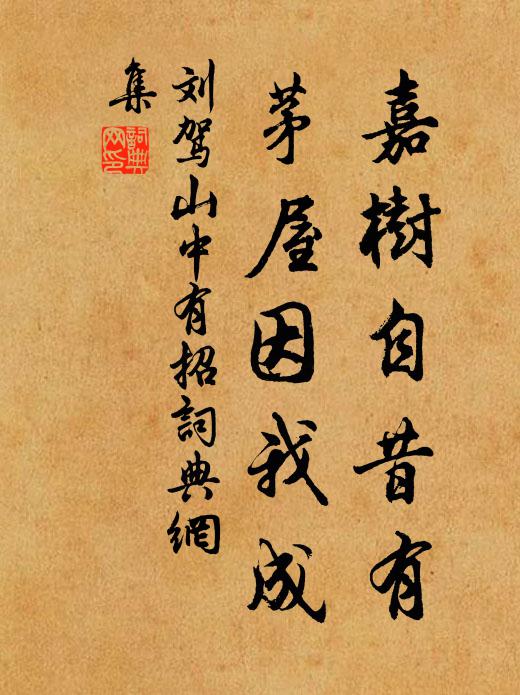 嘉樹自昔有
茅屋因我成
刘驾山中有招詞典網
集
詞典
网印